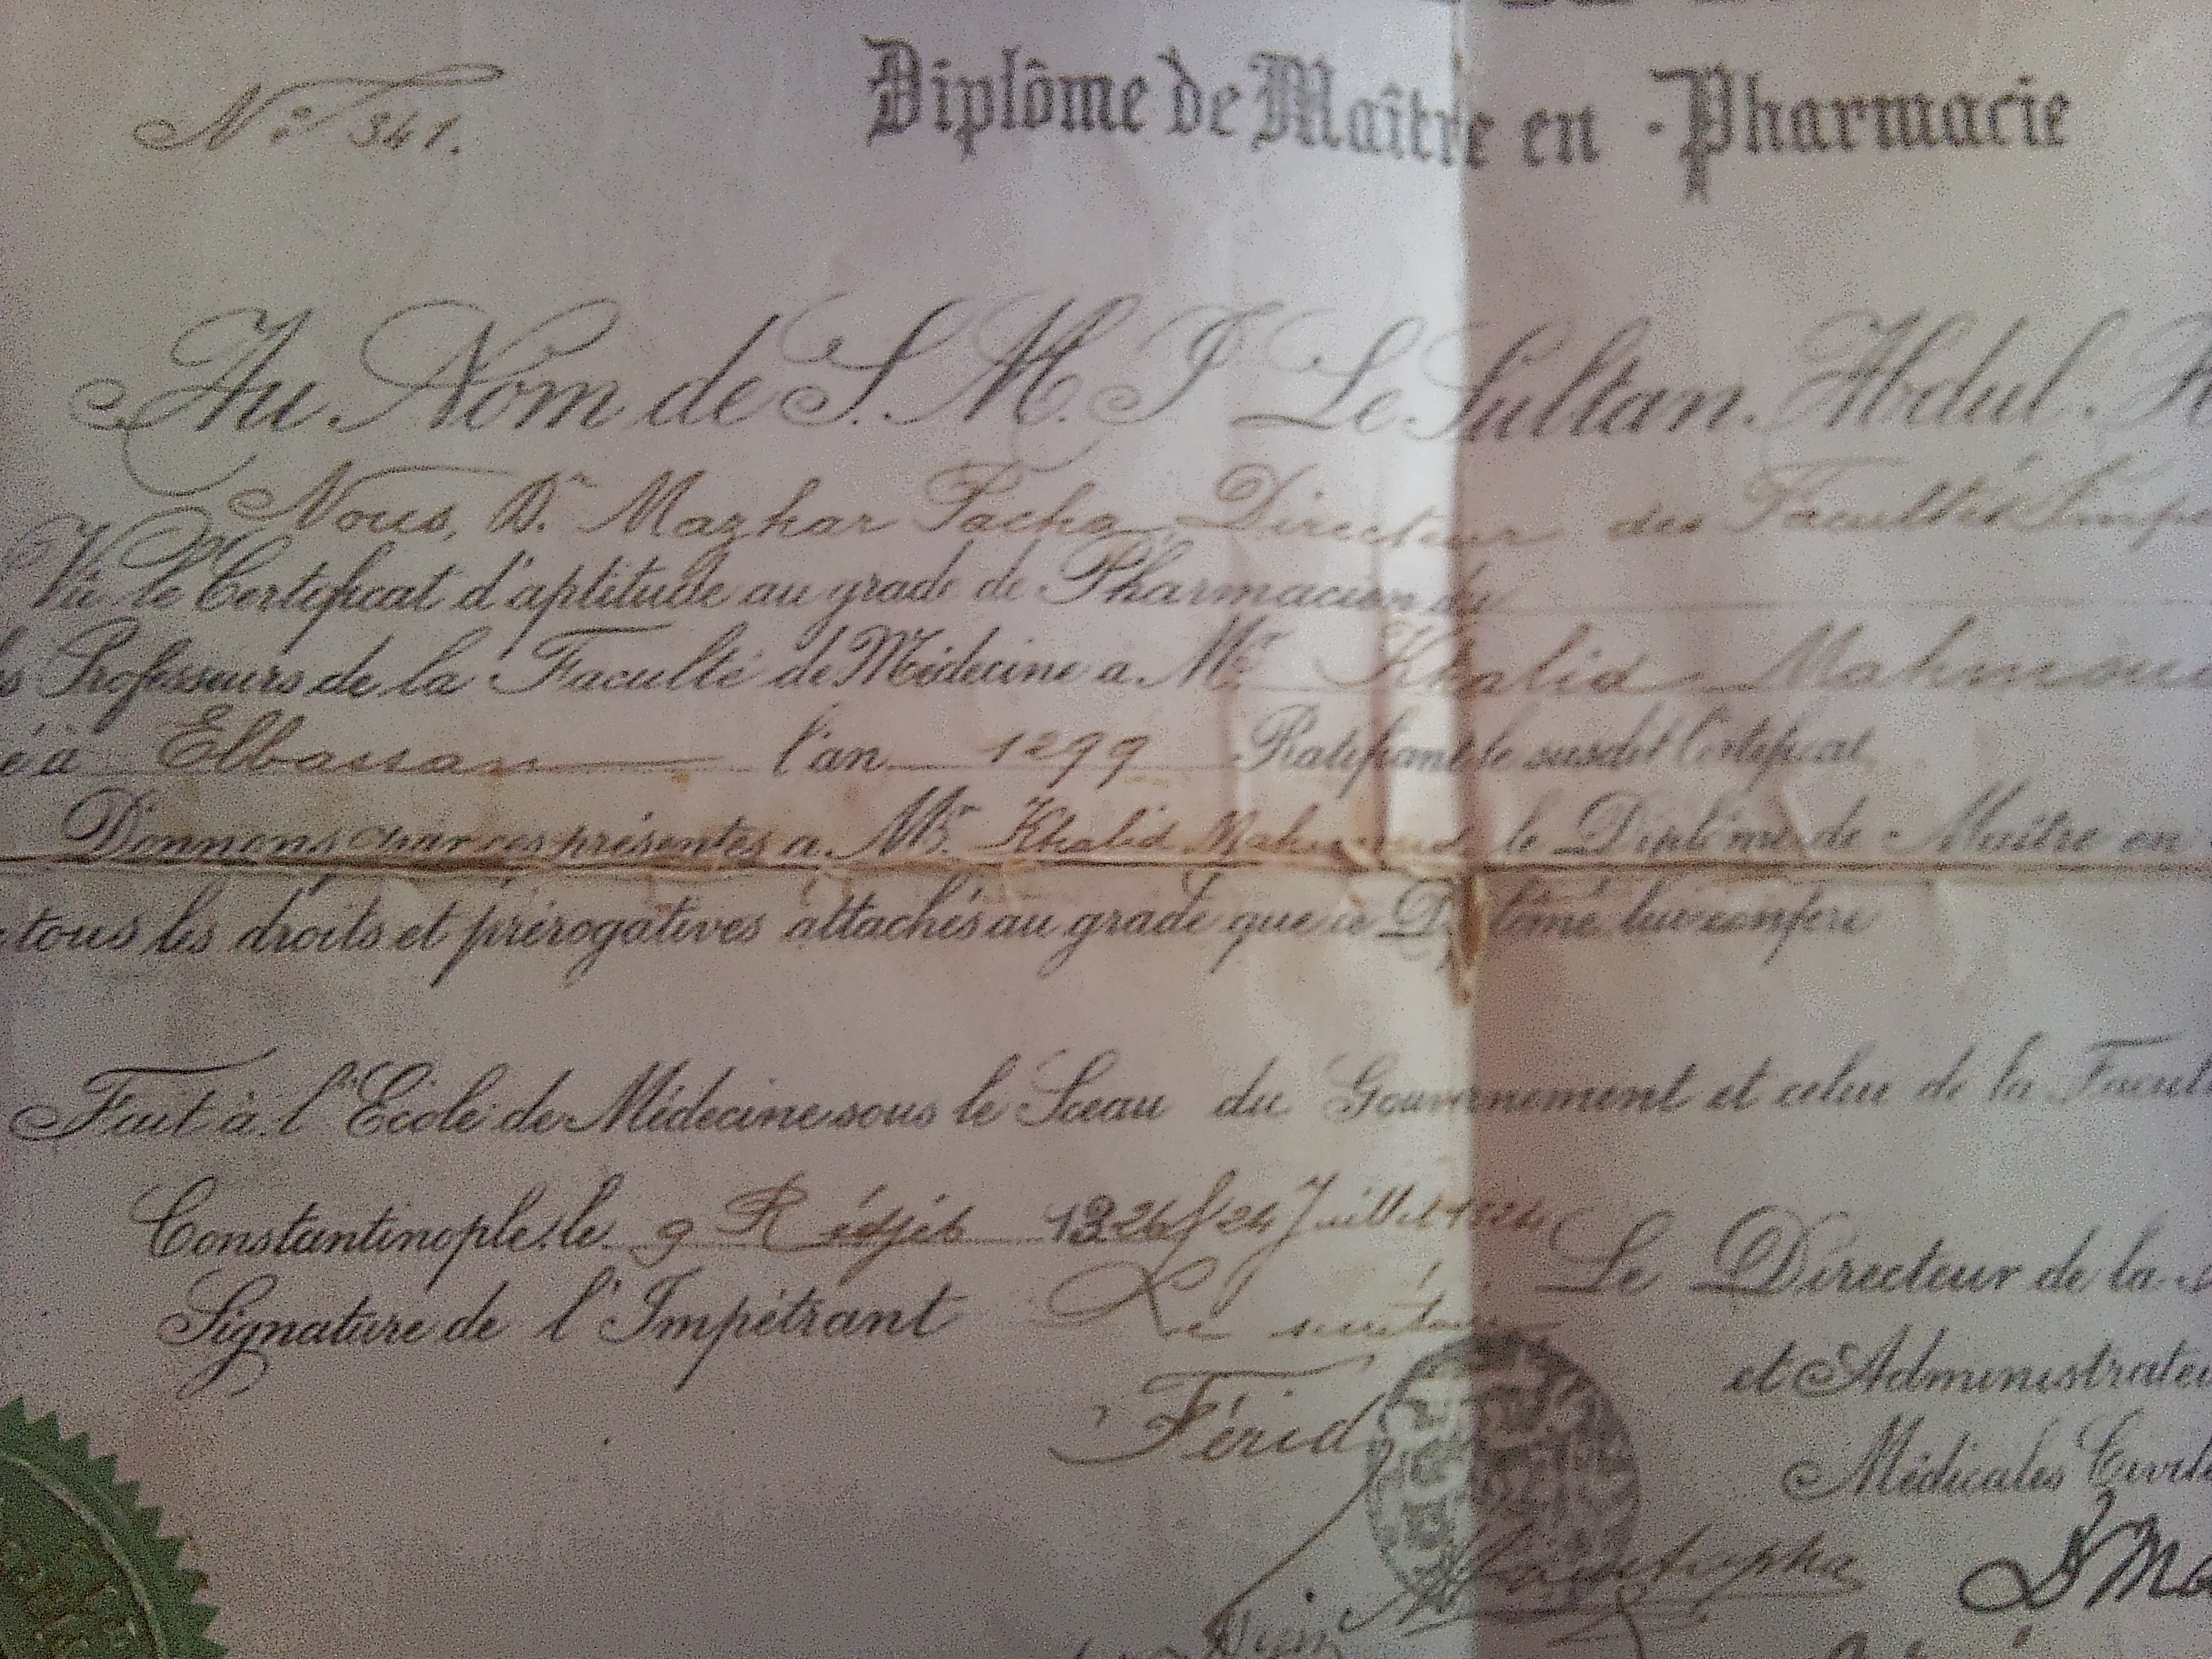 Diplôme de Maître en - Pharmacie
No 341.
Au Nom de S. M. I Le Sultan Abdul
Nous, Dr Mazhar Pacha, Directeur des Facultés
Vu le Certificat d'aptitude au grade de Pharmacien
Professeurs de la Faculté de Médecine à Mr Khalid Mahmoud
à Elbassan l'an 1299 Ratifiant le susdit Certificat
Donnons par ces présentes à Mr Khalid Mahmoud le Diplôme de Maître en
tous les droits et prérogatives attachés au grade que ce Diplôme lui confère
Fait à l'Ecole de Médecine sous le Sceau du Gouvernement et celui de la
Constantinople, le 9 Rédjéb 1326/24 Juillet
Signature de l'Impétrant Le secrétaire Le Directeur de la
et
Férid
Médicales
Dr